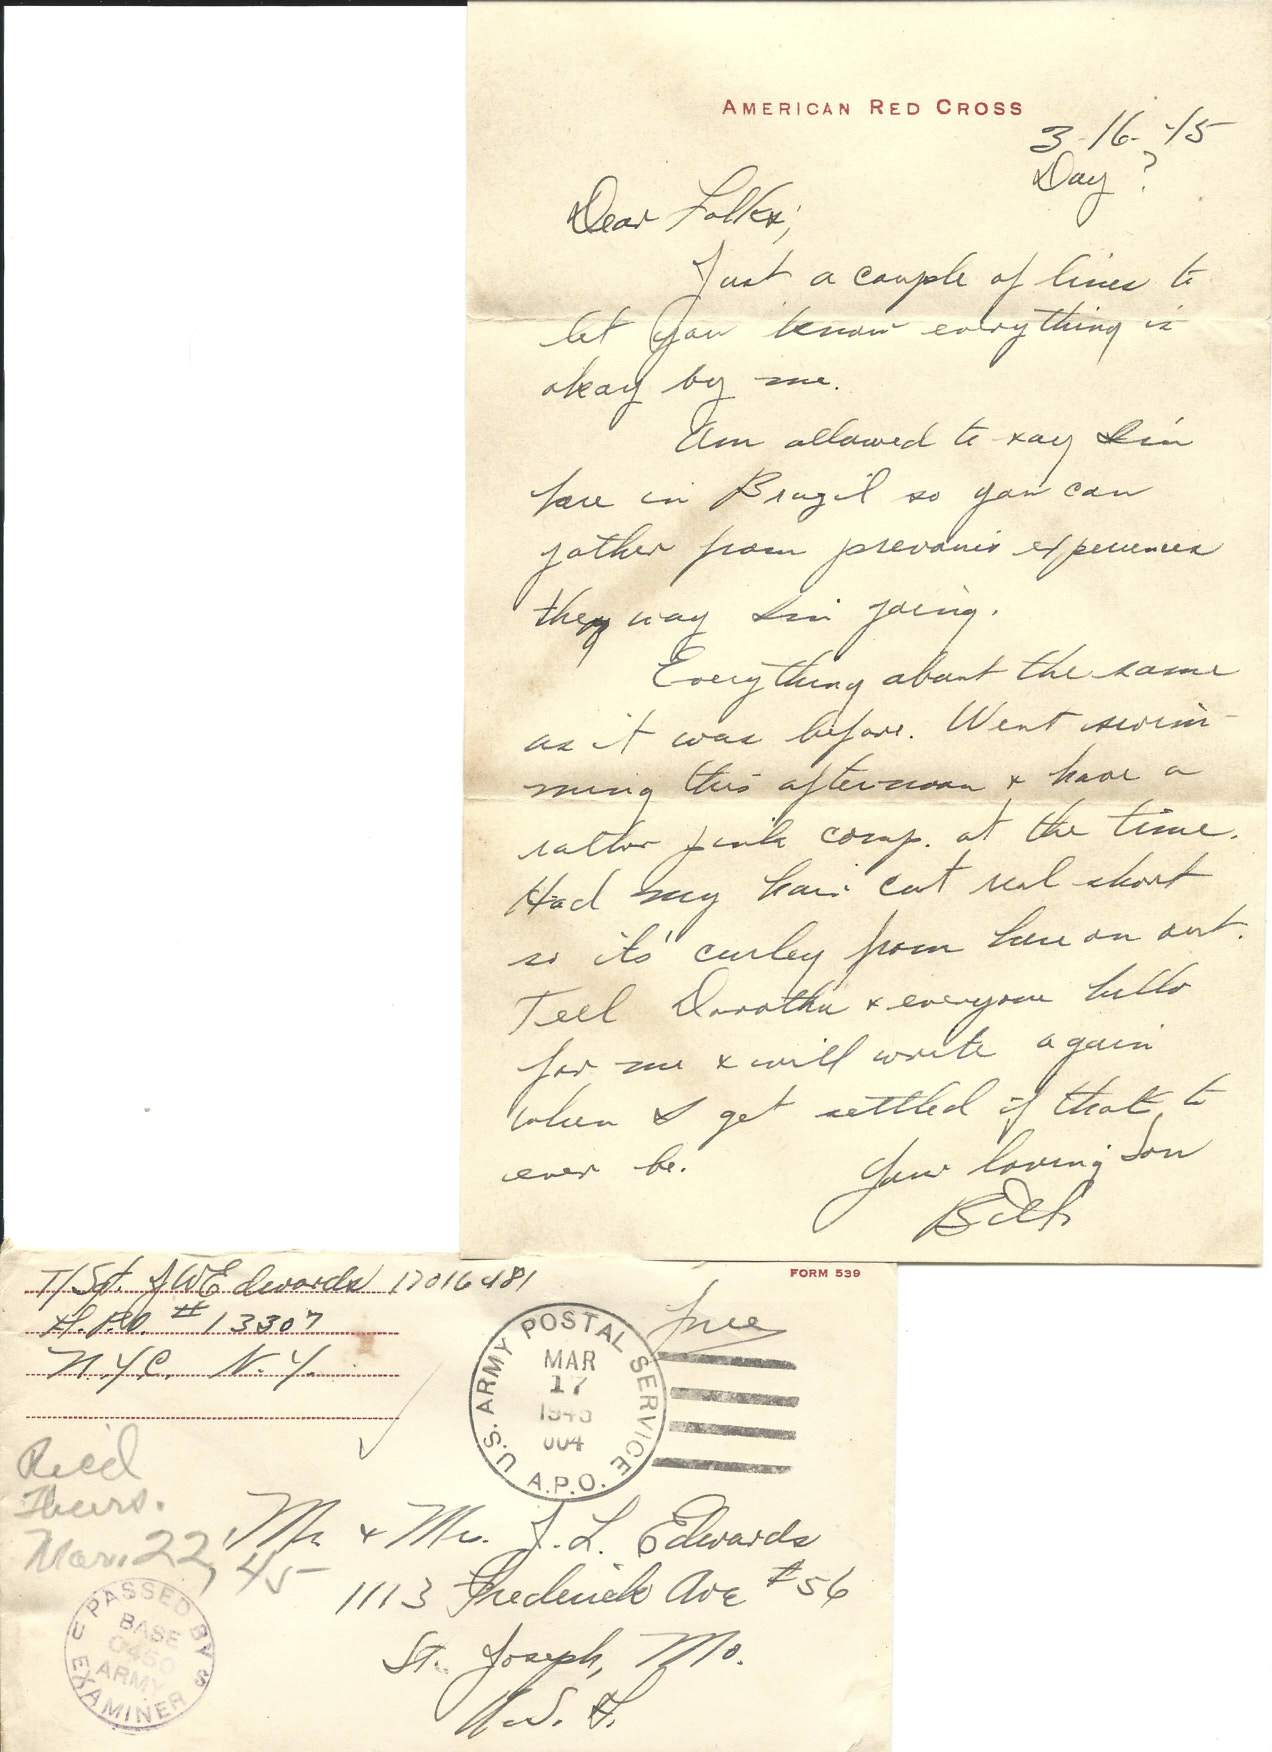 AMERICAN RED CROSS
3-16-45
Day?
Dear Folks;
Just a couple of lines to
let you know everything is
okay by me.
Am allowed to say I'm
here in Brazil so you can
gather from previous experiences
the way I'm going.
Everything about the same
as it was before. Went swim-
ming this afternoon & have a
rather pink comp. at the time.
Had my hair cut real short
so it's curley from here on out.
Tell Dorotha & everyone hello
for me & will write again
when I get settled if that to
ever be.
Your loving Son
Bill
FORM 539
T/Sgt. J W Edwards 17016481
A.P.O. # 13307
N.Y.C. N.Y.
Free
U.S. ARMY POSTAL SERVICE
MAR
17
1945
004
A.P.O.
Rec'd
Thurs.
Mar. 22, 45
Mr. & Mrs. J. L. Edwards
1113 Frederick Ave #56
St. Joseph, Mo.
U.S.A.
PASSED BY
BASE
0450
ARMY
EXAMINER
U S